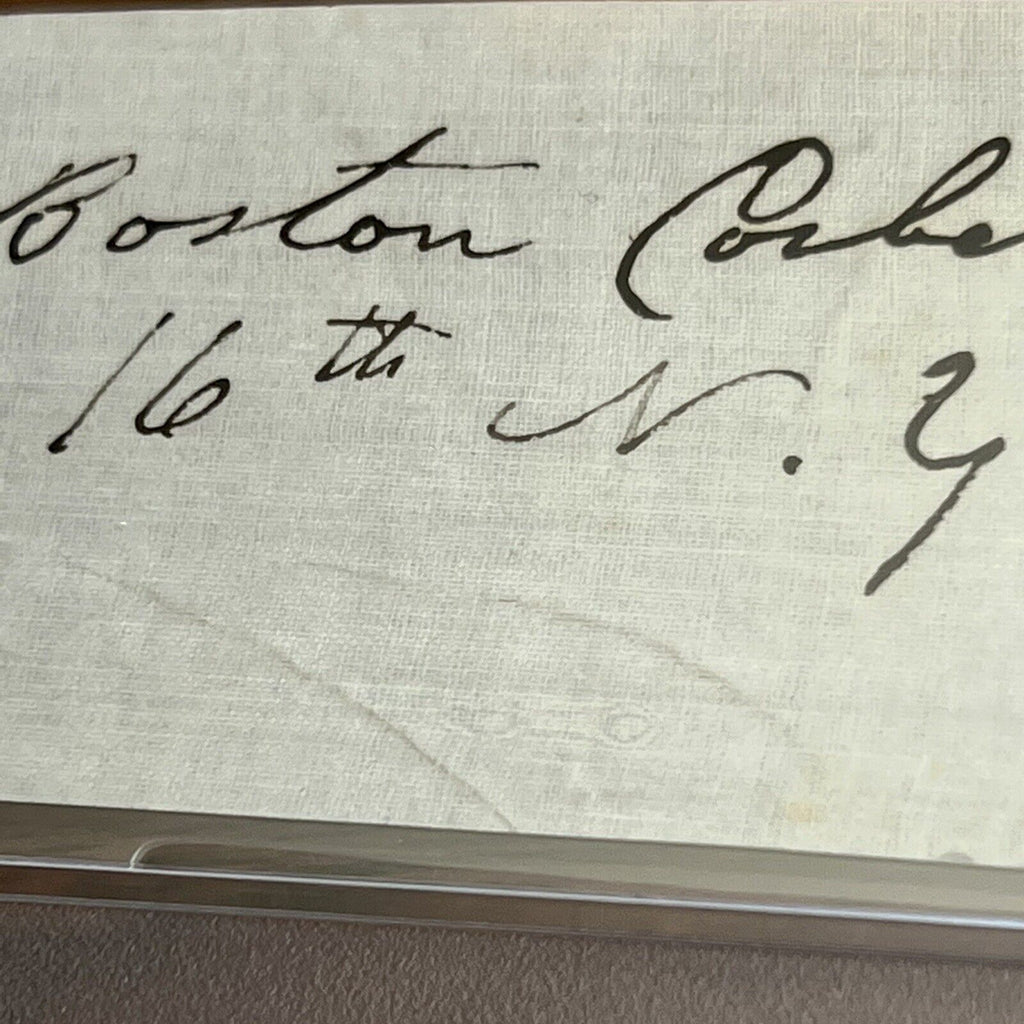 Boston Corbe
16th N. Y